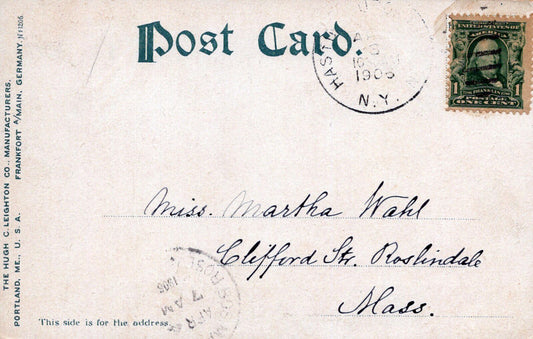 Post Card.
HAST
1906
N.Y.
UNITED STATES OF
AMERICA
1 FRANKLIN 1
POSTAGE
ONE CENT
THE HUGH C. LEIGHTON CO., MANUFACTURERS,
PORTLAND, ME., U. S. A. FRANKFORT A/MAIN, GERMANY.
Miss. Martha Wahl
Clifford Str. Roslindale
Mass.
APR
7 AM
1906
This side is for the address.